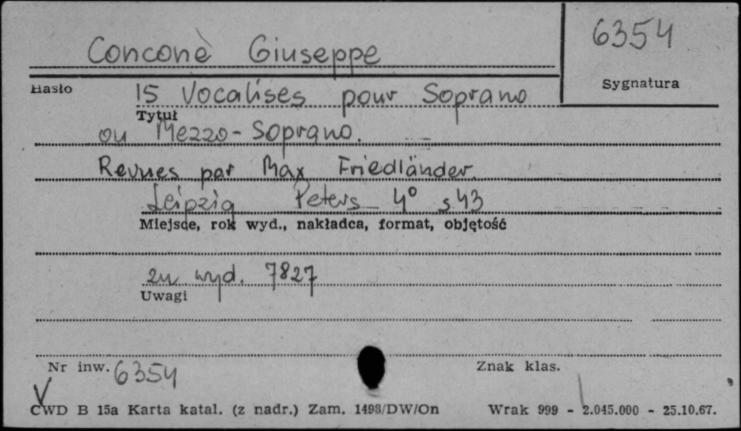 Conconè Giuseppe
6354
Hasło
Sygnatura
15 Vocalises pour Soprano
Tytuł
ou Mezzo-Soprano.
Revues par Max Friedländer.
Leipzig Peters 4° s 43
Miejsce, rok wyd., nakładca, format, objętość
zn wyd. 7827
Uwagi
Nr inw. 6354
Znak klas.
CWD B 15a Karta katal. (z nadr.) Zam. 1498/DW/On
Wrak 999 - 2.045.000 - 25.10.67.